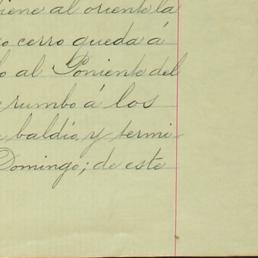 iene al oriente la
o cerro queda á
o al Poniente del
rumbo á los
baldio y termi
Domingo; de este